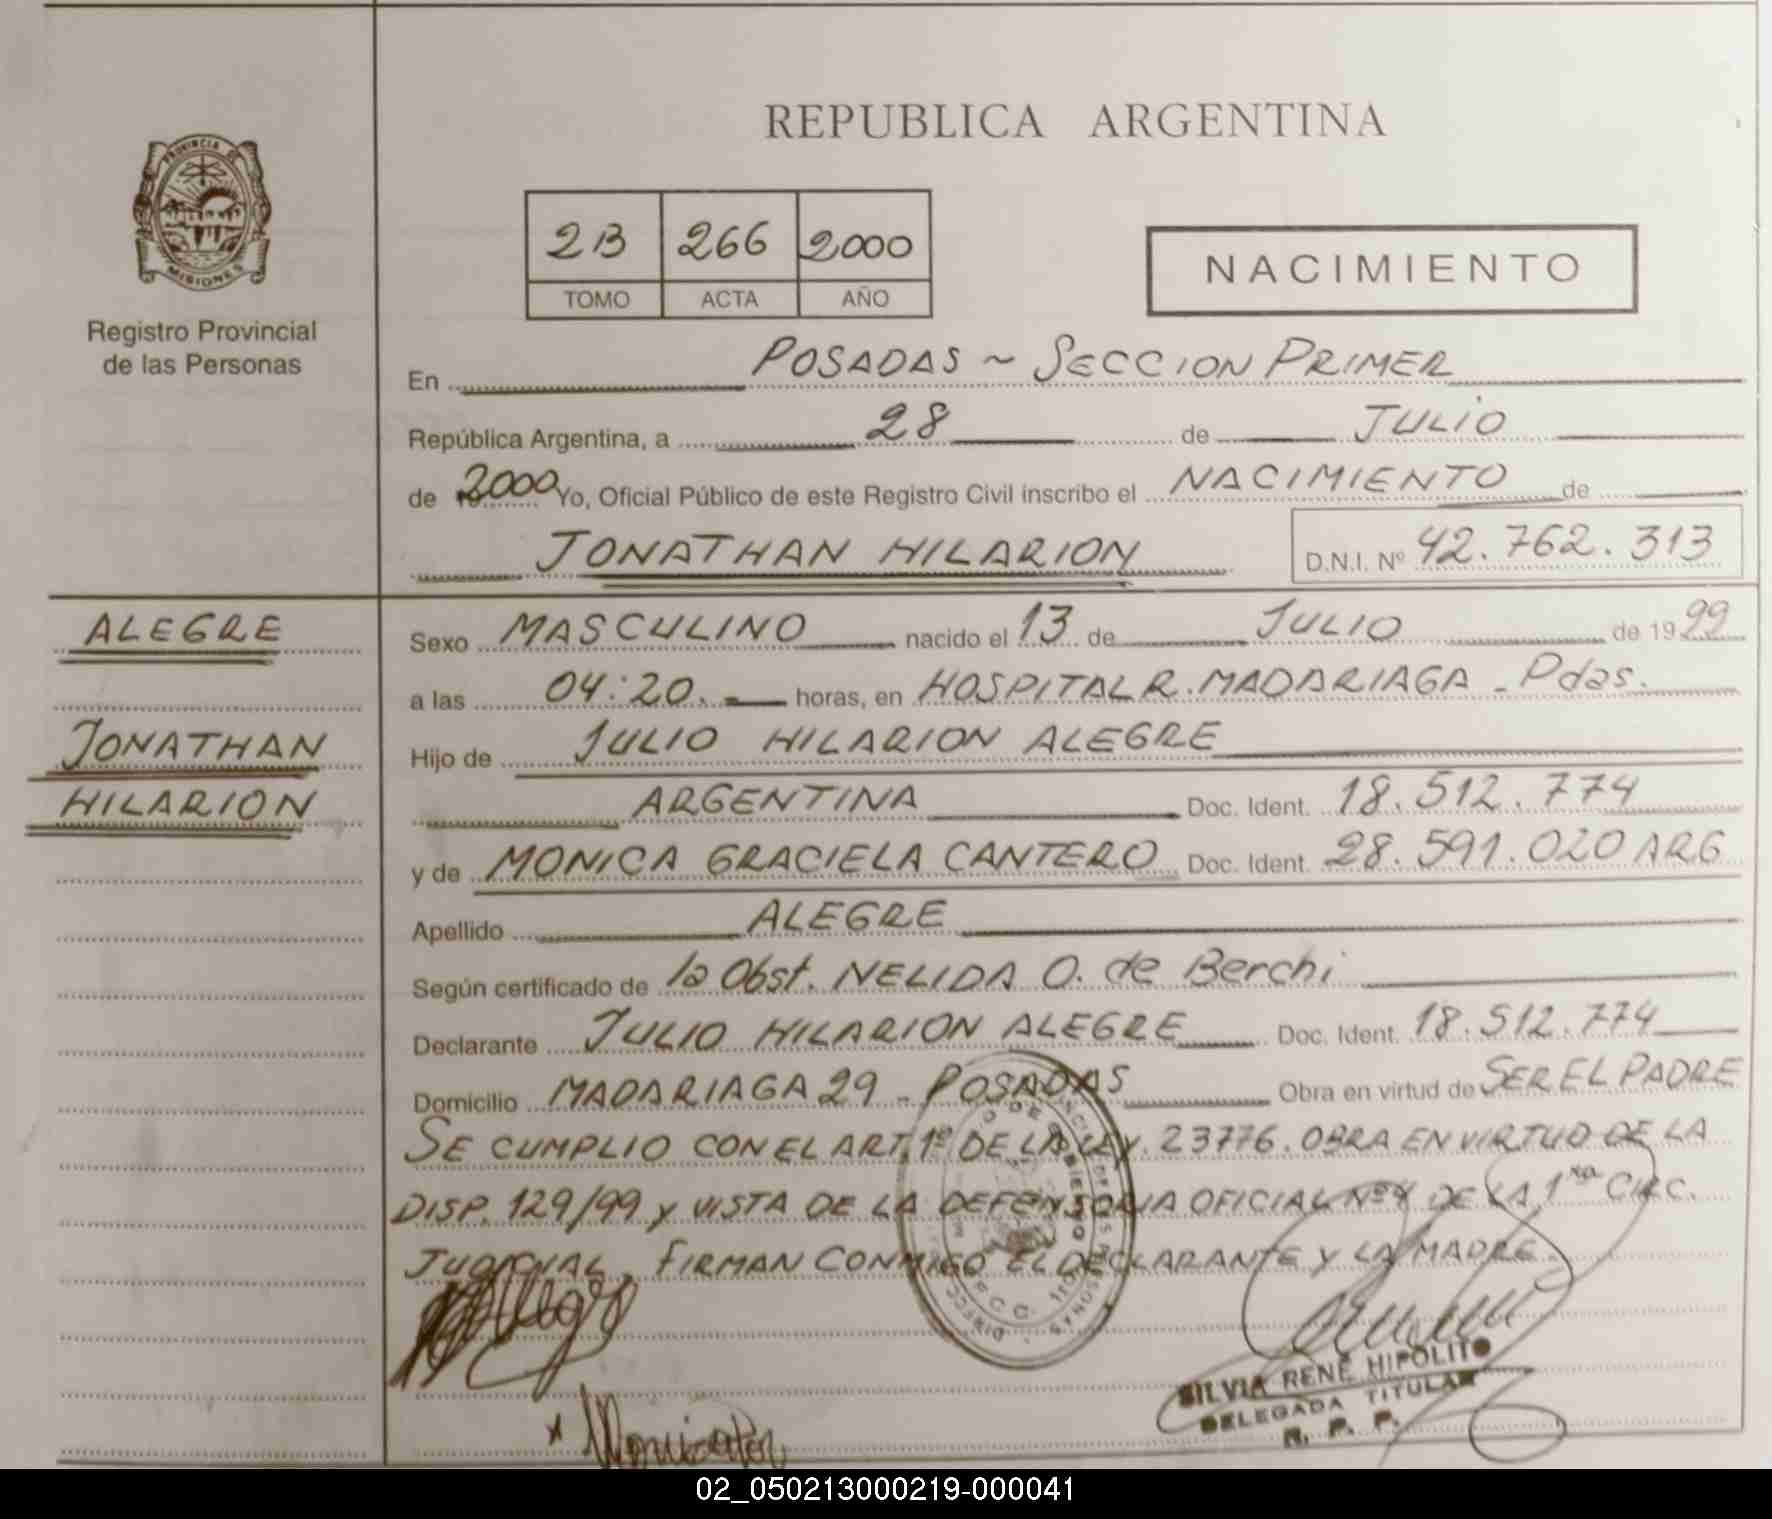 REPUBLICA ARGENTINA
PROVINCIA DE
MISIONES
Registro Provincial
de las Personas
2B 266 2000
TOMO ACTA AÑO
NACIMIENTO
En POSADAS ~ SECCION PRIMER
República Argentina, a 28 de JULIO
de 2000 Yo, Oficial Público de este Registro Civil inscribo el NACIMIENTO de
JONATHAN HILARION D.N.I. Nº 42.762.313
ALEGRE
JONATHAN
HILARION
Sexo MASCULINO nacido el 13 de JULIO de 1999
a las 04:20.- horas, en HOSPITAL R. MADARIAGA - Pdas.
Hijo de JULIO HILARION ALEGRE
ARGENTINA Doc. Ident. 18.512.774
y de MONICA GRACIELA CANTERO Doc. Ident. 28.591.020 ARG
Apellido ALEGRE
Según certificado de la Obst. NELIDA O. de Berchi
Declarante JULIO HILARION ALEGRE Doc. Ident. 18.512.774
Domicilio MADARIAGA 29 - POSADAS Obra en virtud de SER EL PADRE
SE CUMPLIO CON EL ART. 1º DE LA LEY. 23776. OBRA EN VIRTUD DE LA
DISP. 129/99 y VISTA DE LA DEFENSORIA OFICIAL Nº4 DE LA 1ra CIRC.
JUDICIAL. FIRMAN CONMIGO EL DECLARANTE Y LA MADRE.
SILVIA RENÉ HIPÓLITO
DELEGADA TITULAR
R. P. P.
02_050213000219-000041